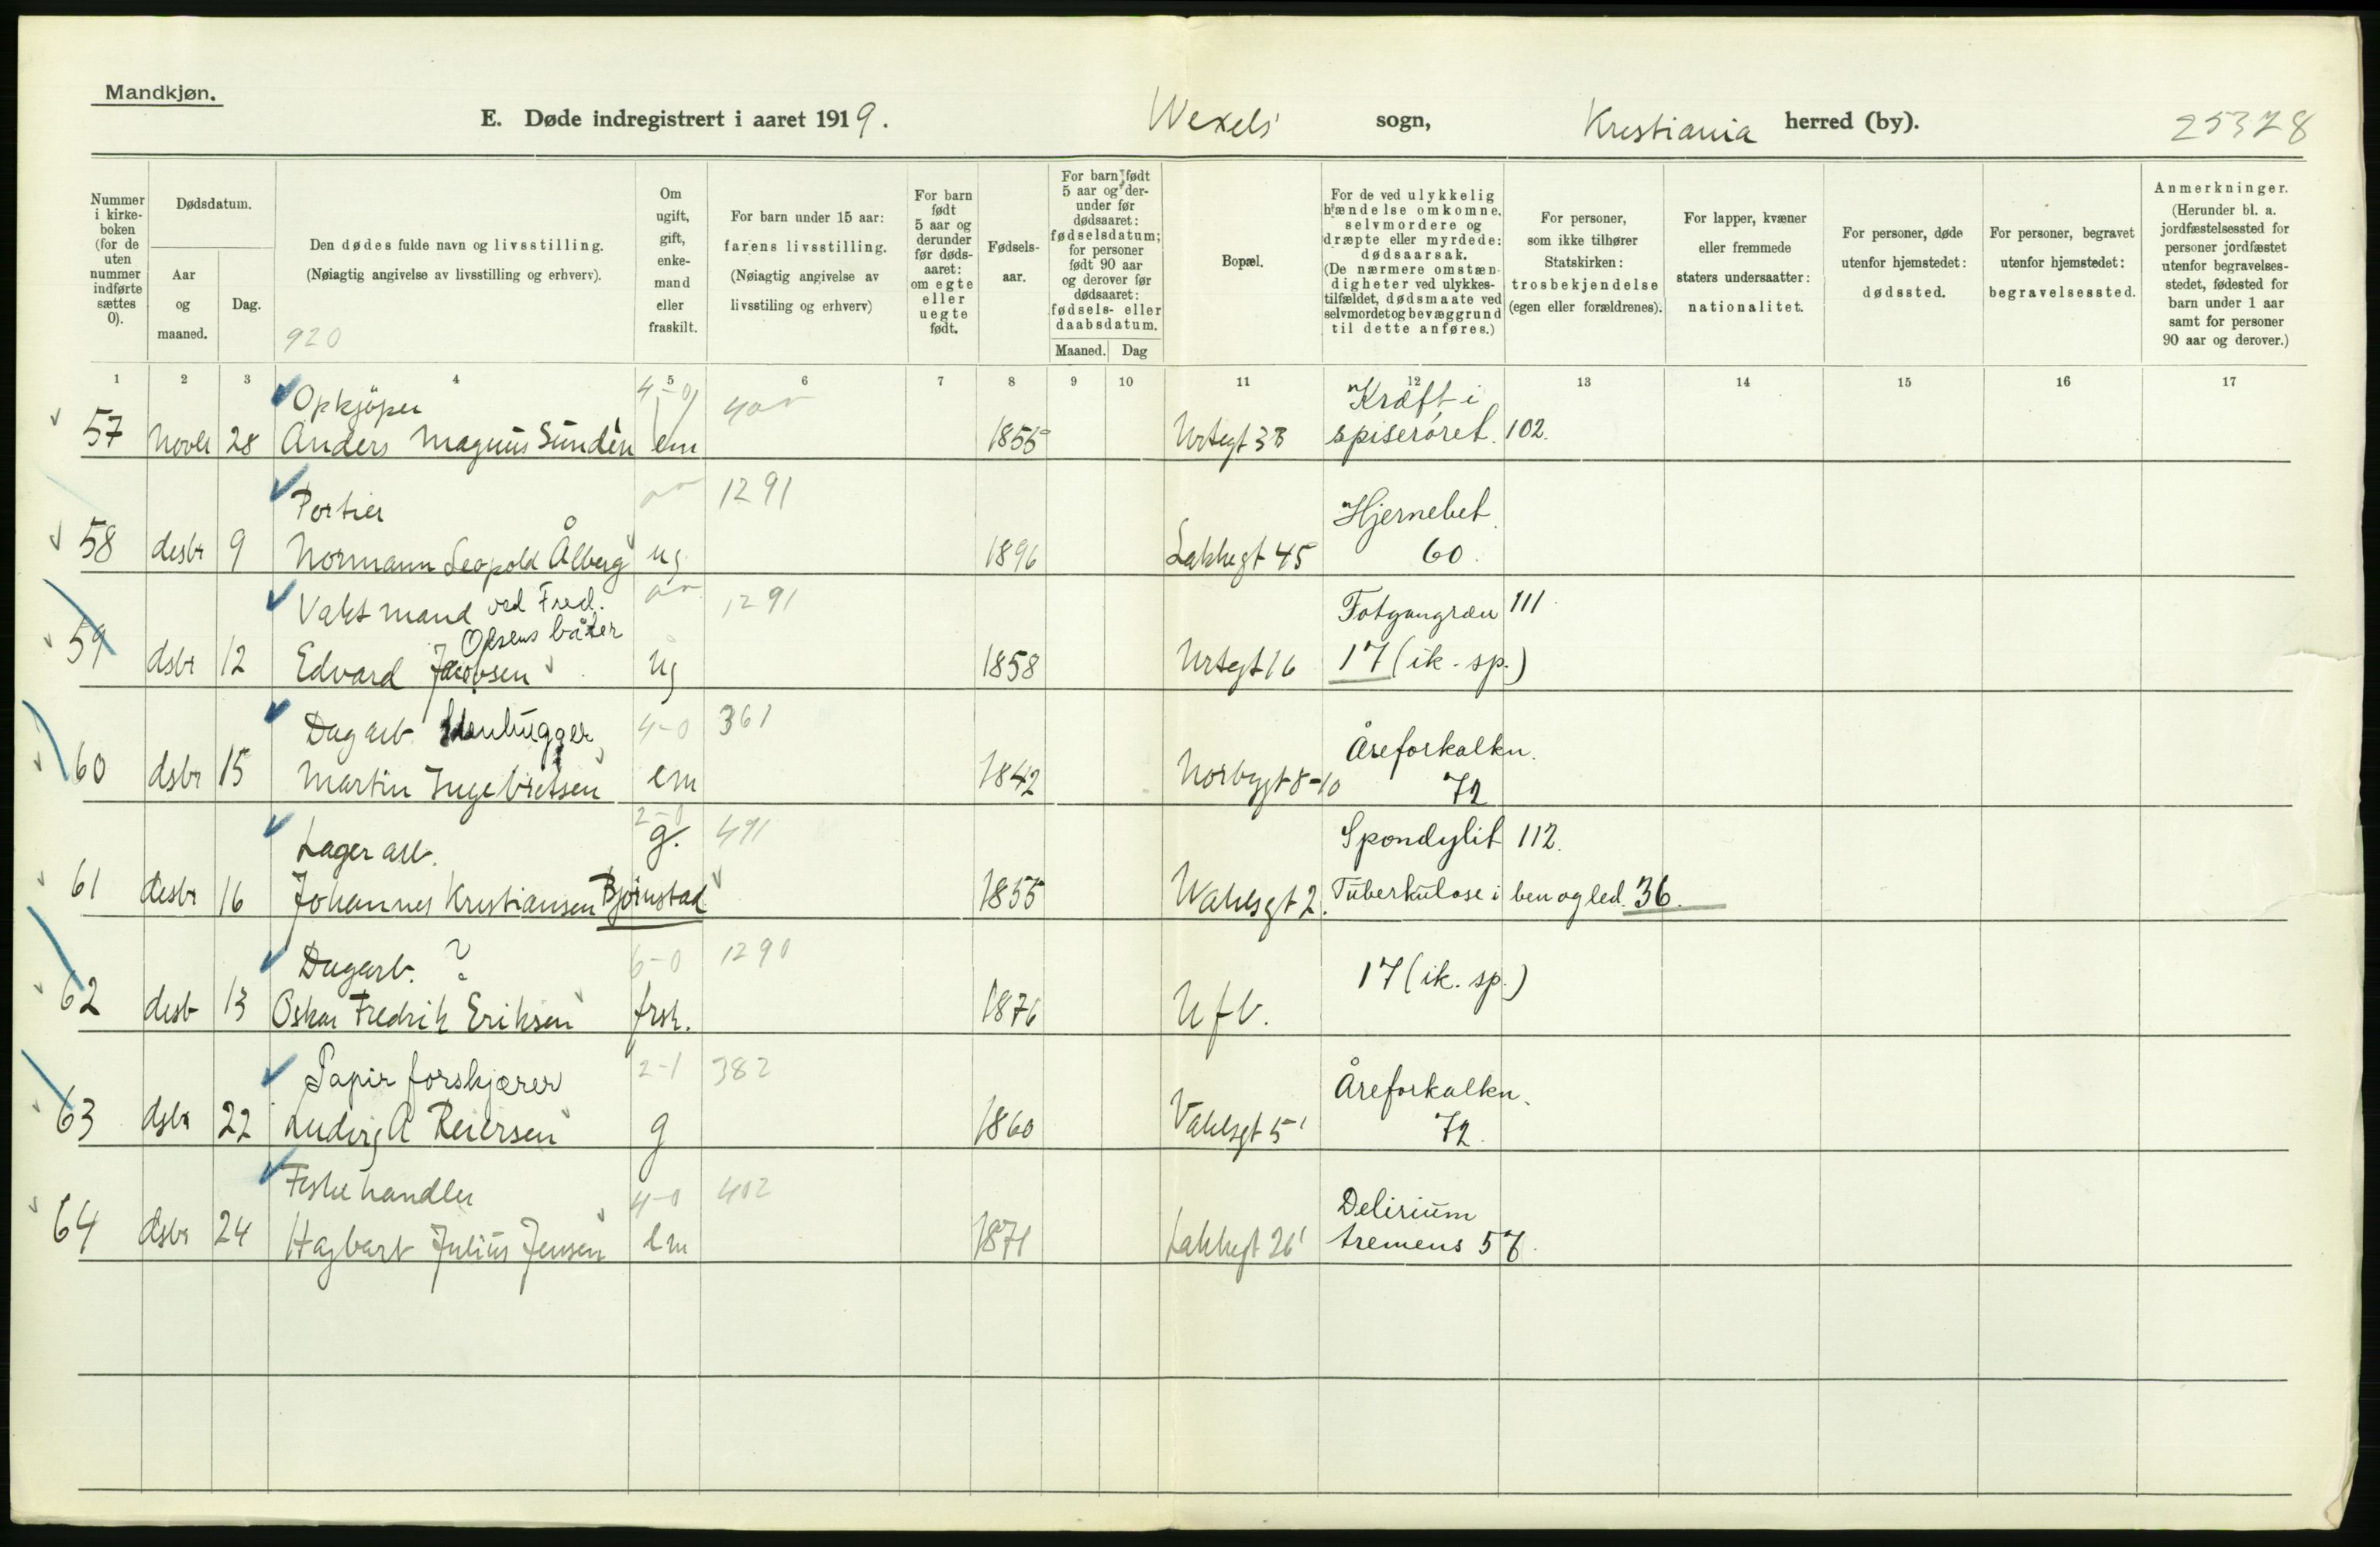 Mandkjøn.
E. Døde indregistrert i aaret 1919. Wexels' sogn, Kristiania herred (by). 25378
Nummer i kirkeboken (for de uten nummer indførte sættes 0).
Dødsdatum.
Aar og maaned.
Dag.
Den dødes fulde navn og livsstilling.
(Nøiagtig angivelse av livsstilling og erhverv).
920
Om ugift, gift, enkemand eller fraskilt.
For barn under 15 aar:
farens livsstilling.
(Nøiagtig angivelse av livsstiling og erhverv)
For barn født 5 aar og derunder før dødsaaret: om egte eller uegte født.
Fødselsaar.
For barn født 5 aar og derunder før dødsaaret: fødselsdatum; for personer født 90 aar og derover før dødsaaret: fødsels- eller daabsdatum.
Maaned. Dag
Bopæl.
For de ved ulykkelig hændelse omkomne, selvmordere og dræpte eller myrdede: dødsaarsak.
(De nærmere omstændigheter ved ulykkestilfældet, dødsmaate ved selvmordet og bevæggrund til dette anføres.)
For personer, som ikke tilhører Statskirken: trosbekjendelse (egen eller forældrenes).
For lapper, kvæner eller fremmede staters undersaatter: nationalitet.
For personer, døde utenfor hjemstedet: dødssted.
For personer, begravet utenfor hjemstedet: begravelsessted.
Anmerkninger.
(Herunder bl. a. jordfæstelsessted for personer jordfæstet utenfor begravelsesstedet, fødested for barn under 1 aar samt for personer 90 aar og derover.)
1 2 3 4 5 6 7 8 9 10 11 12 13 14 15 16 17
Opkjøper 4-0 Kræft i
57 Novbr 28 Anders Magnus Sundèn em 1855 Urtegt 38 spiserøret. 102.
Portier 1291 Hjernebet.
58 desbr 9 Normann Leopold Ålberg ug 1896 Lakkegt 45 60.
Vaktmand ved Fred. 1291 Fotgangræn 111.
Olsens båter
59 dsbr 12 Edvard Jacobsen ug 1858 Urtegt 16 17 (ik. sp.)
Dagarb. Stenhugger 4-0 361 Åreforkalkn.
60 dsbr 15 Martin Ingebretsen em 1842 Norbygt 8-10 72
Lagerarb. 2-0 g. 491 Spondylit 112.
61 desbr 16 Johannes Kristiansen Bjørnstad 1855 Wahlsgt 2. Tuberkulose i ben og led. 36.
Dagarb. ? 6-0 1290 17 (ik. sp.)
62 desb 13 Oskar Fredrik Eriksen frsk. 1876 Ufb.
Papirforskjærer 2-1 382 Åreforkalkn.
63 dsbr 22 Ludvig A Reiersen g 1860 Vahlsgt 5' 72.
Fiskehandler 4-0 402 Delirium
64 dsbr 24 Hagbart Julius Jensen em 1871 Lakkegt 26' tremens 57.